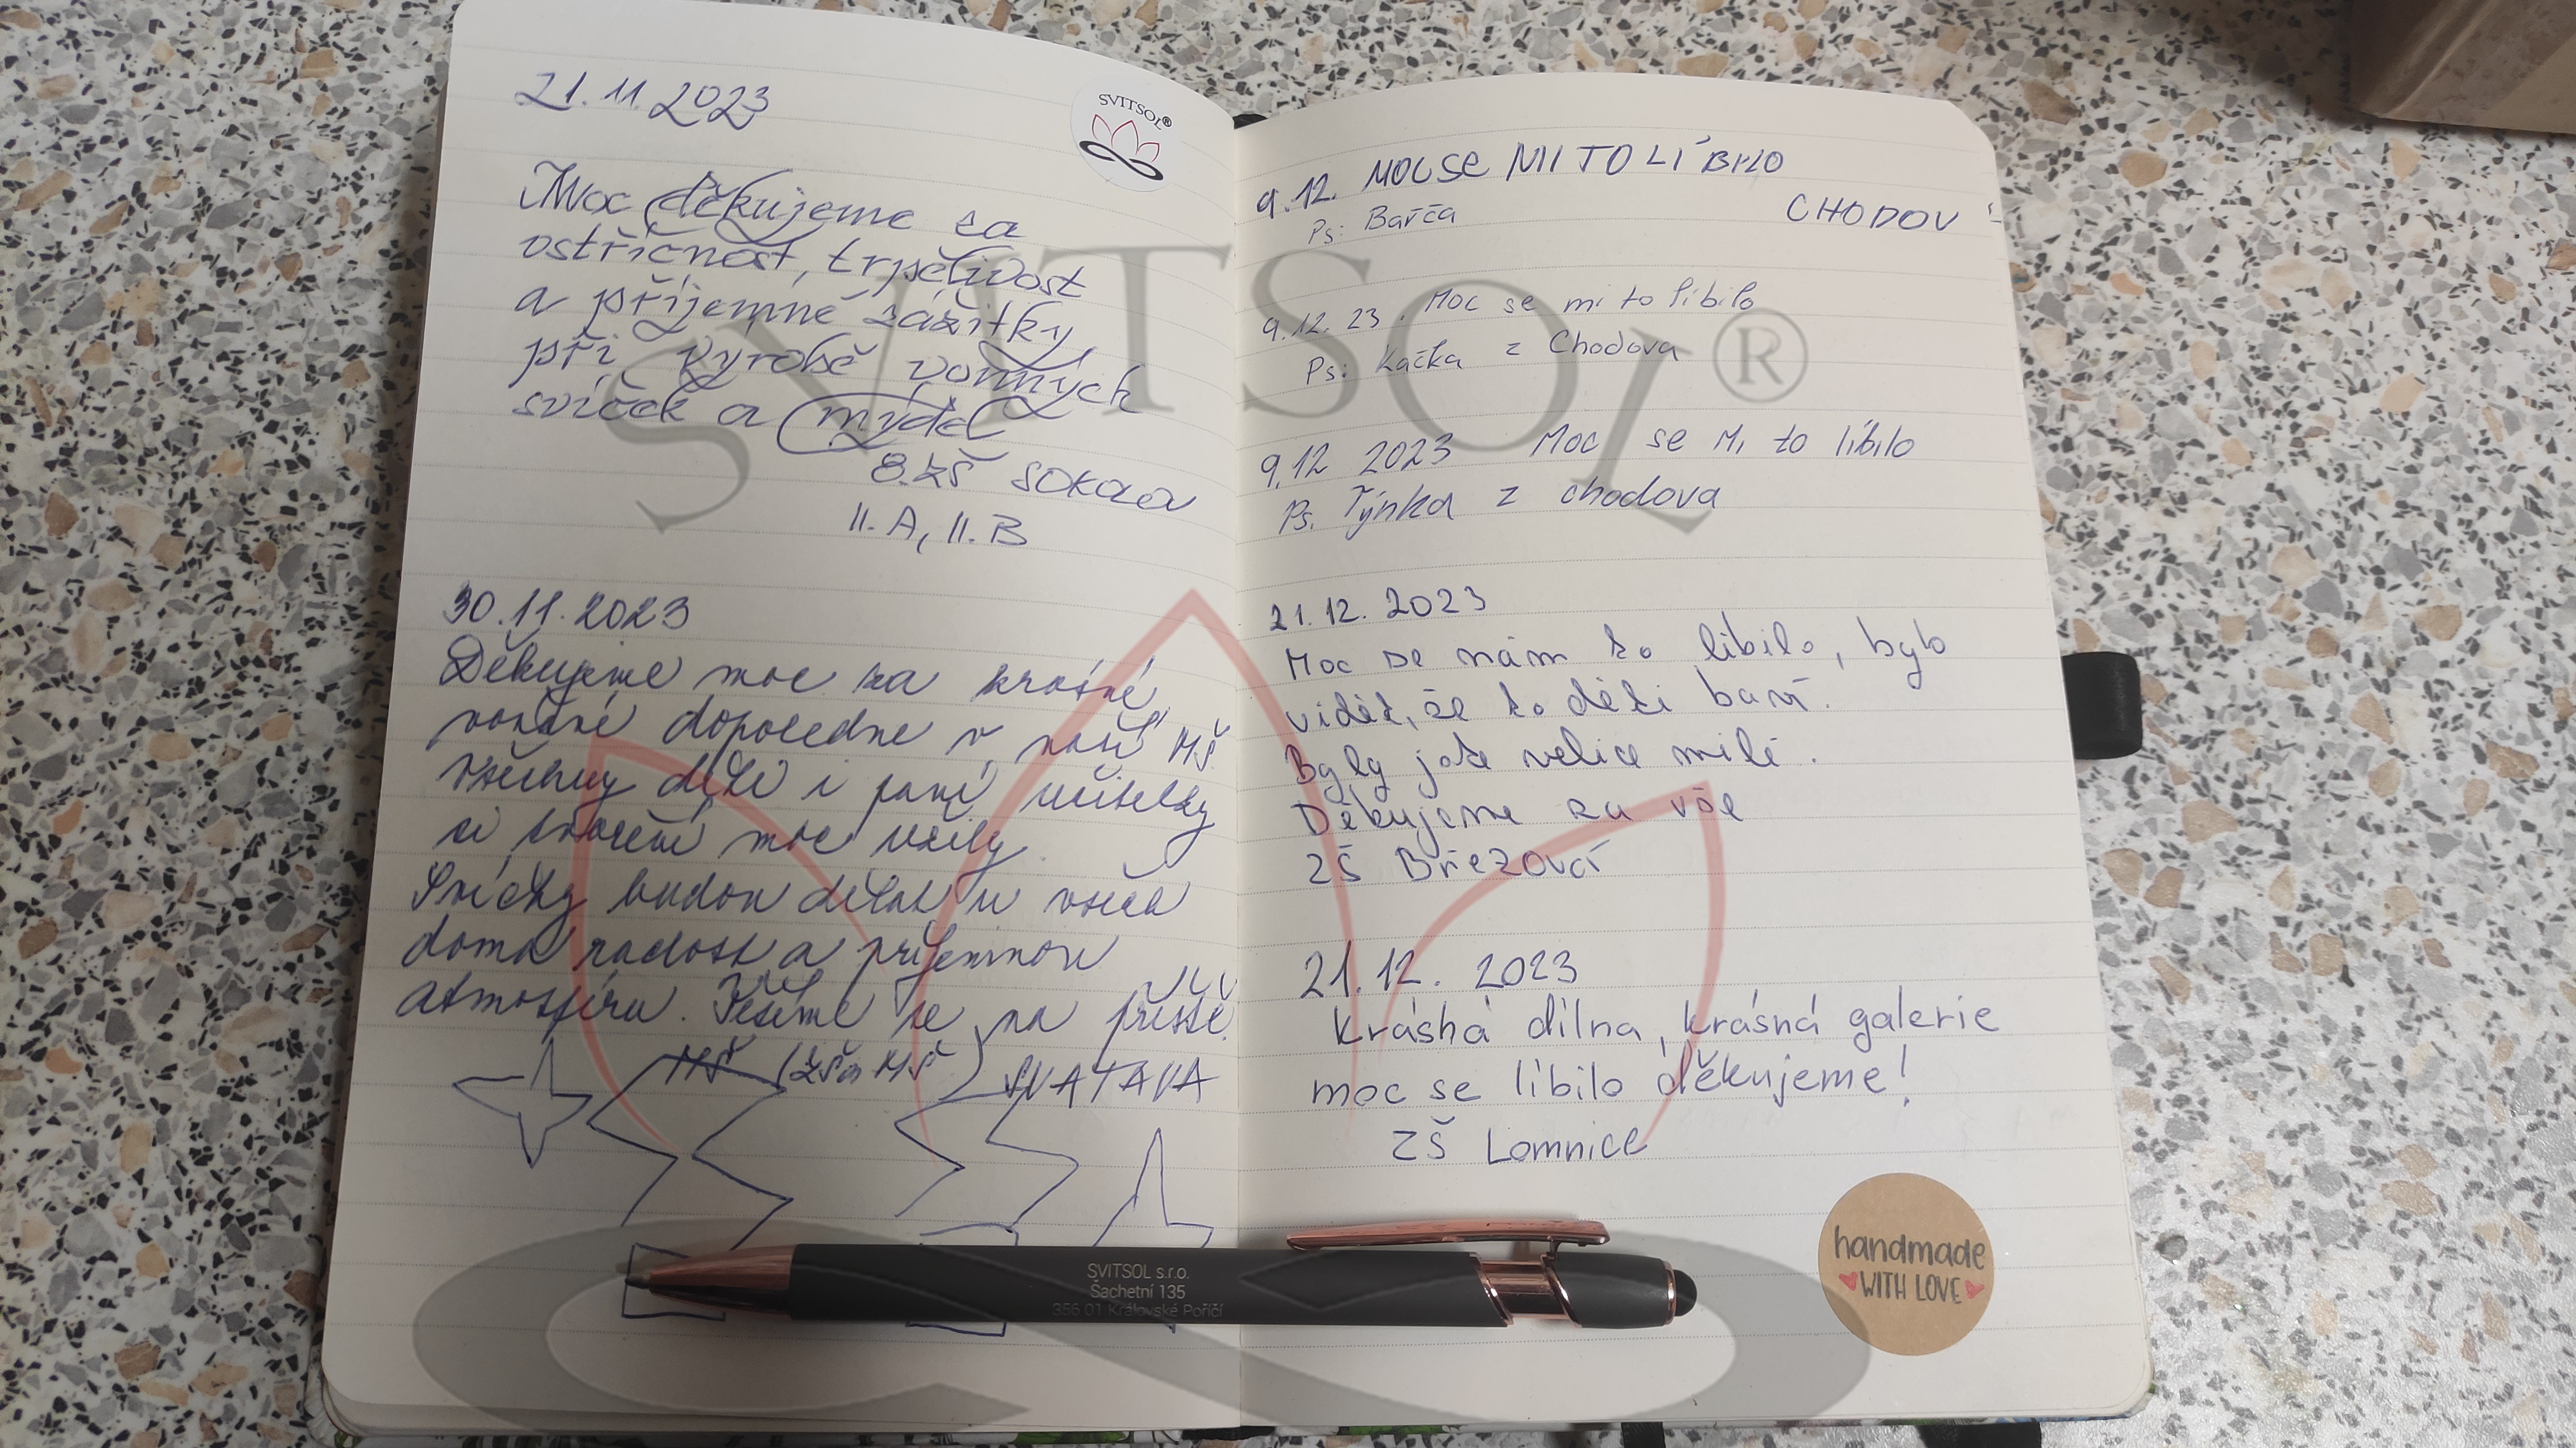 21.11.2023
SVITSOL®
Moc děkujeme za
ostřícnost, trpělivost
a příjemné zážitky
při výrobě vonných
svíček a mýdel
8.ZŠ SOKOLOV
II.A, II.B
30.11.2023
Děkujeme moc za krásné
voňavé dopoledne v naší MŠ.
Všechny děti i paní učitelky
si tvoření moc užily.
Svíčky budou dělat u všech
doma radost a příjemnou
atmosféru. Těšíme se na příště.
MŠ (ZŠ a MŠ) SVATAVA
9.12. MOC SE MI TO LÍBILO
CHODOV
Ps: Barča
9.12.23. Moc se mi to líbilo
Ps: Kačka z Chodova
9.12 2023 Moc se Mi to líbilo
Ps. Týnka z chodova
21.12.2023
Moc se nám to líbilo, bylo
vidět, že to děti baví.
Byly jste velice milé.
Děkujeme za vše
ZŠ Březová
21.12. 2023
Krásná dílna, krásná galerie
moc se líbilo děkujeme!
ZŠ Lomnice
handmade
WITH LOVE
SVITSOL s.r.o.
Šachetní 135
356 01 Královské Poříčí
SVITSOL®